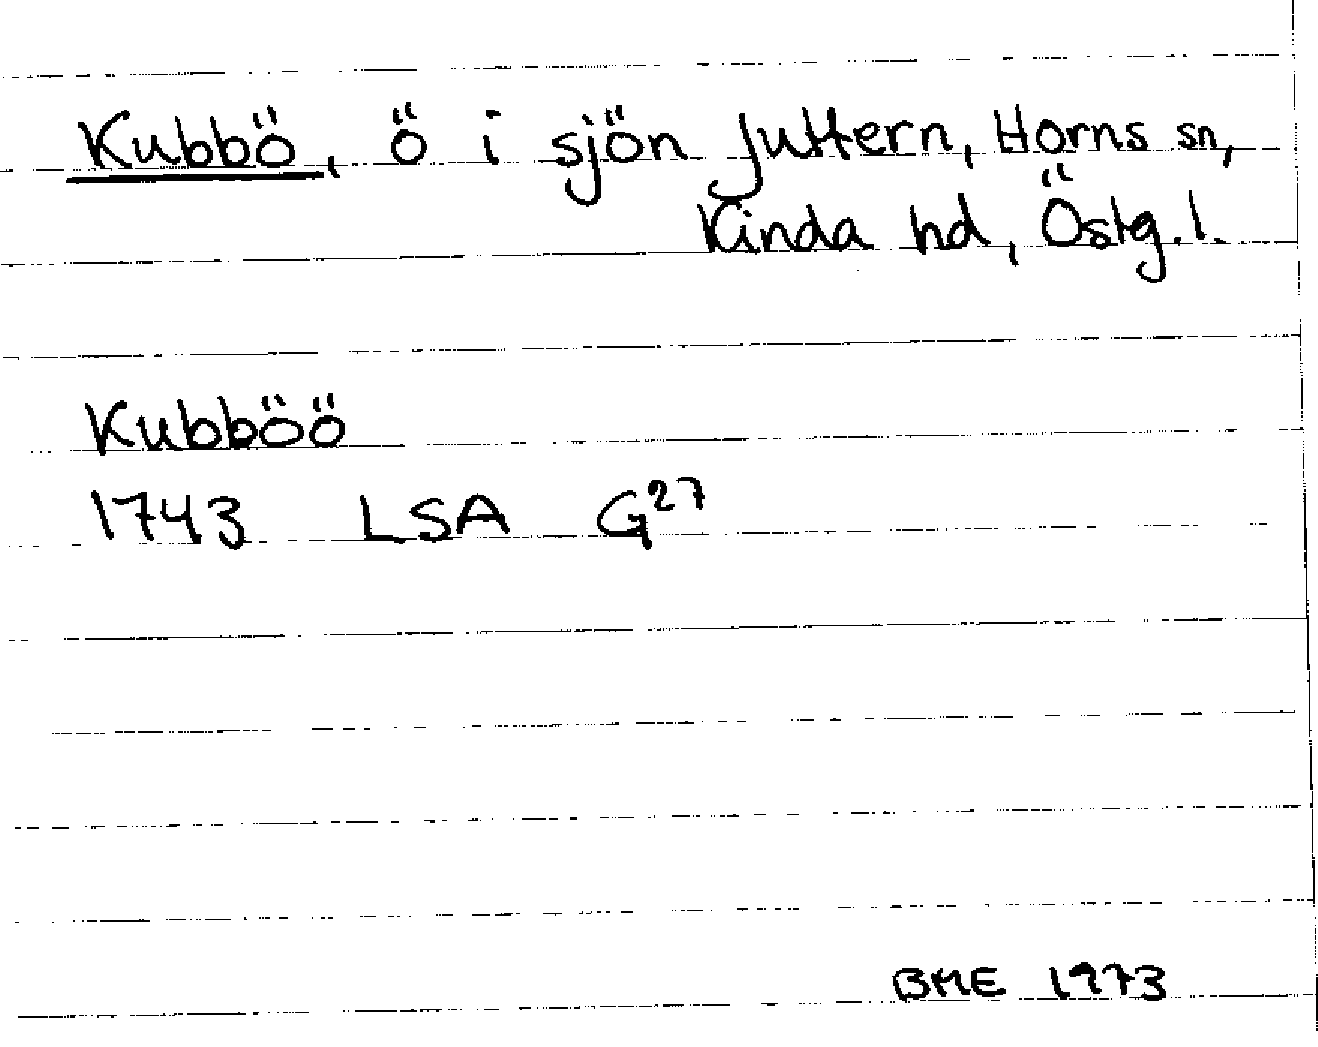 Kubbö, ö i sjön Juttern, Horns sn,
Kinda hd, Östg.l.
Kubböö
1743 LSA G27
BME 1973